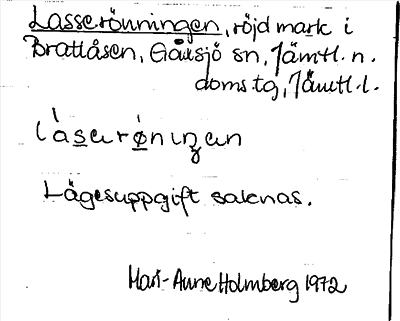 Lasserönningen, röjd mark i
Brattåsen, Gåxsjö sn, Jämtl. n.
doms.tg, Jämtl. l.
làsarǿniŋan
Lägesuppgift saknas.
Mari-Anne Holmberg 1972